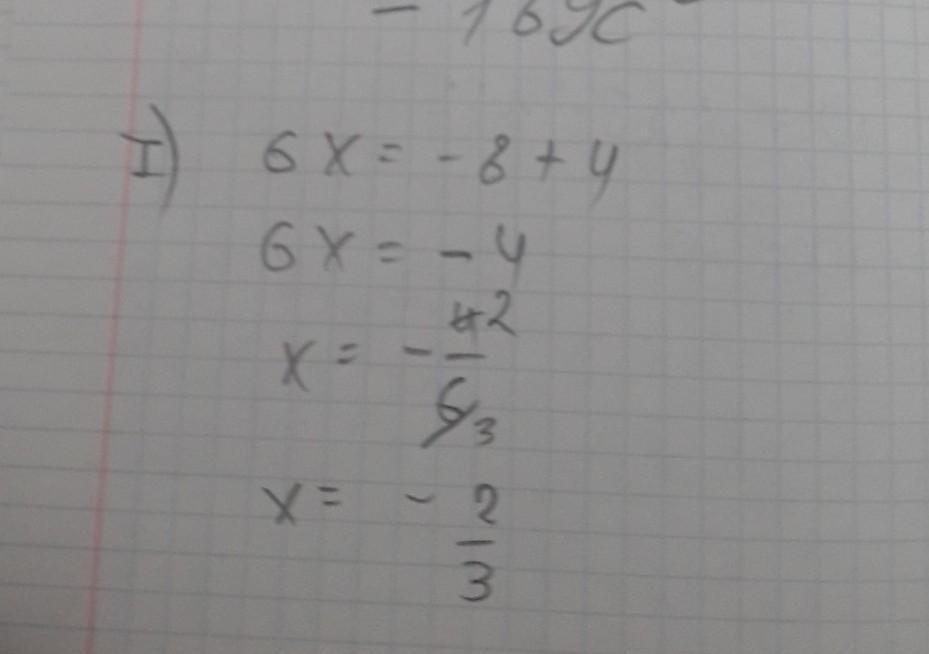 I) 6x = -8 + 4
6x = -4
x = - 4 2
6 3
x = - 2
3